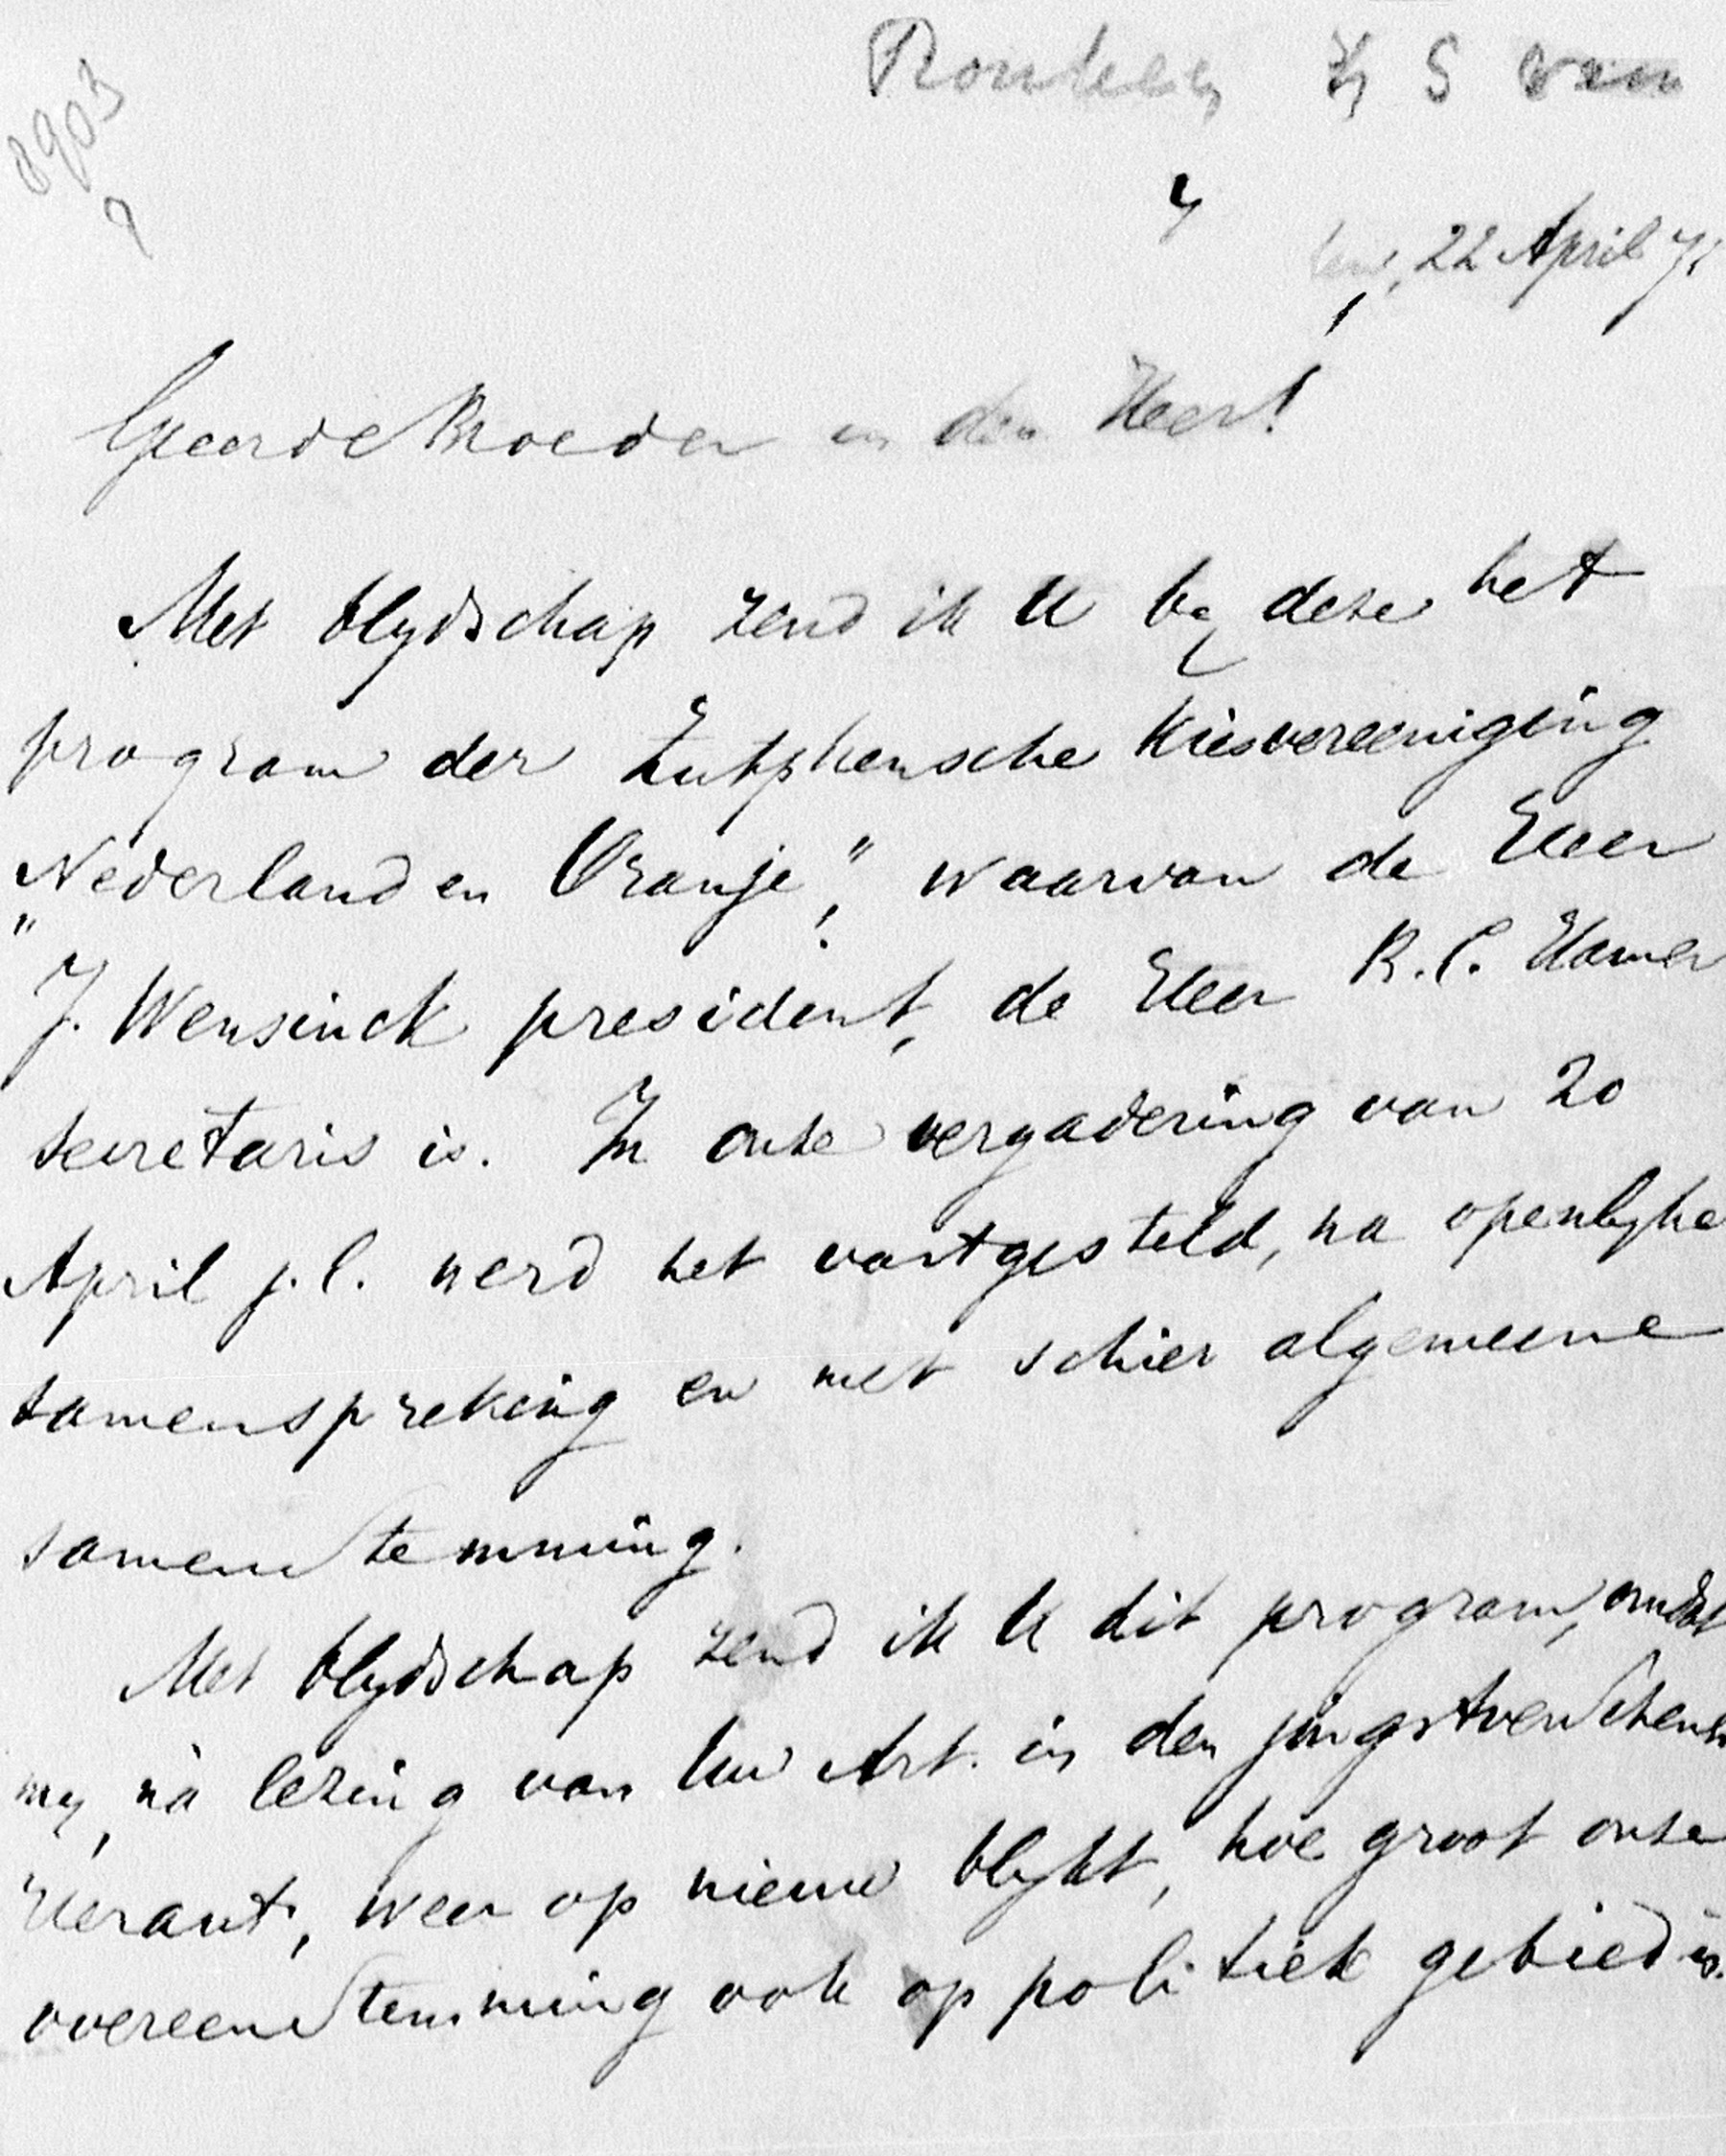 8903
22 April 71
Geerde Broeder in den Heer!
Met blydschap zend ik U by deze het
program der Zutphensche Kiesvereeniging
"Nederland en Oranje," waarvan de Heer
J. Wensinck president, de Heer R. C. Hamer
secretaris is. In onze vergadering van 20
April j.l. werd het vastgesteld, na openlyke
samenspreking en met schier algemeene
samenstemming.
Met blydschap zend ik U dit program, omdat
my, na lezing van Uw Art. in den jongstverschenen
Heraut, weer op nieuw blykt, hoe groot onze
overeenstemming ook op politiek gebied is.